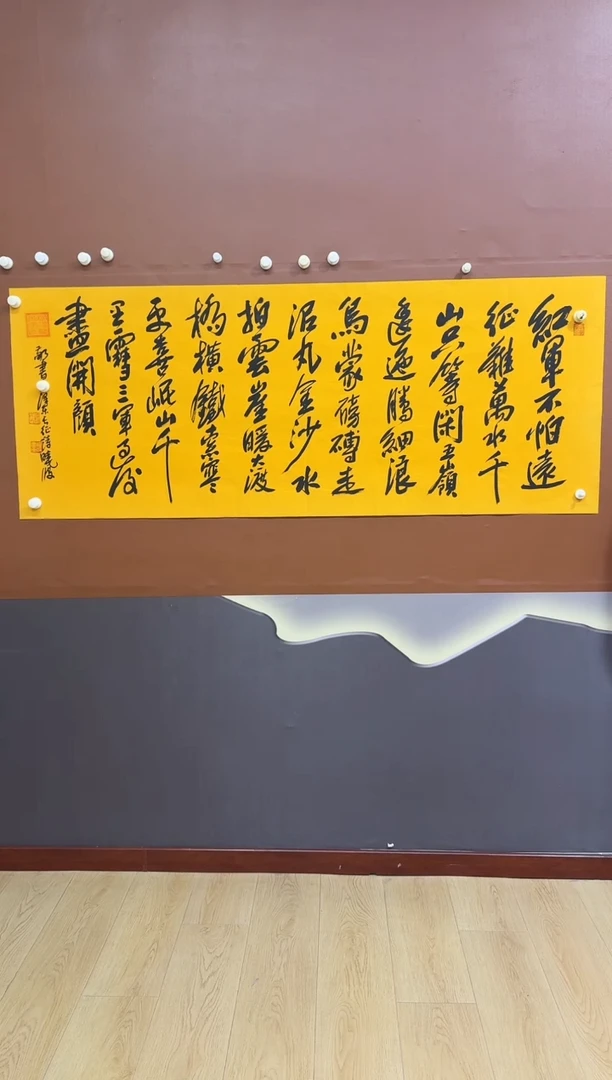 紅軍不怕遠
征難萬水千
山只等閑五嶺
逶迤騰細浪
烏蒙磅礴走
泥丸金沙水
拍雲崖暖大渡
橋橫鐵索寒
更喜岷山千
里雪三軍過後
盡開顏
敬書澤东长征詩曉波